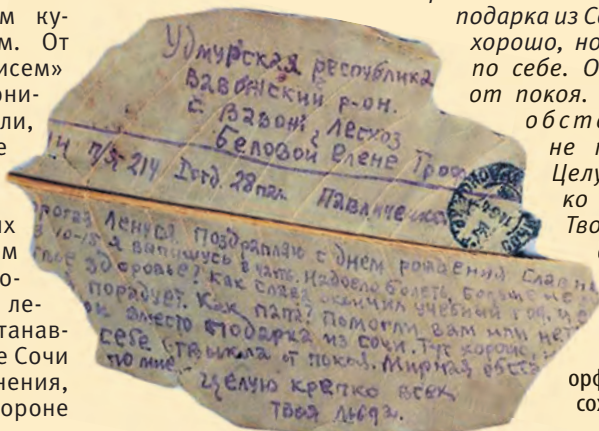 м ку-
м. От
исем»
они-
ли,
е
их
м
о-
ле-
танав-
е Сочи
нения,
ороне
Удмурская республика
Вавожский р-он.
с Вавож, Лесхоз
Беловой Елене Троф
14 п/я 214 Iотд. 28пал. Павличенко
орогая Ленуся. Поздравляю с днем рождения Слави
10-15 я выпишусь в часть. Надоело болеть, больше не
здоровье? Как Слава окончил учебный год, че
порадует. Как папа? Помогли вам или нет
ок вместо подарка из Сочи. Тут хорошо,
себе отвыкла от покоя. Мирная обста
по мне. Целую крепко всех
Твоя Люда.
подарка из Со
хорошо, но
по себе. О
от покоя.
обста
не п
Целу
ко
Тво
орф
сох